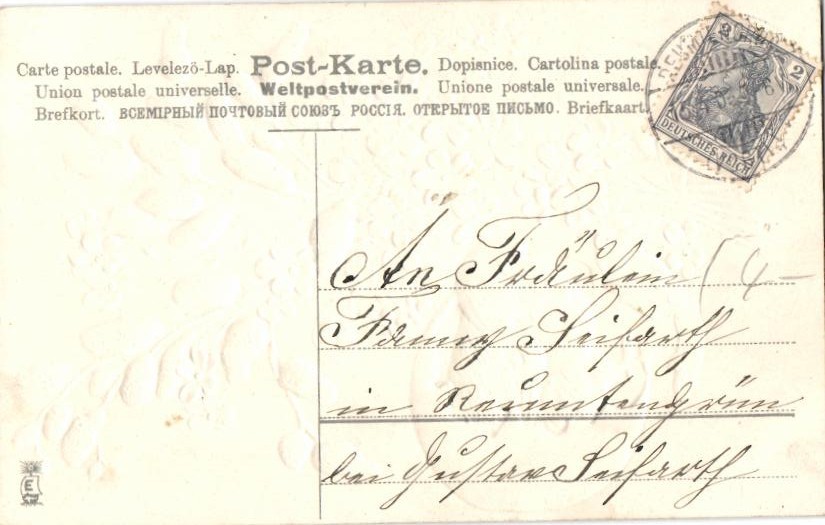 Carte postale. Levelezö-Lap. Post-Karte. Dopisnice. Cartolina postale.
Union postale universelle. Weltpostverein. Unione postale universale.
Brefkort. ВСЕМІРНЫЙ ПОЧТОВЫЙ СОЮЗЪ РОССІЯ. ОТКРЫТОЕ ПИСЬМО. Briefkaart.
2 2
DEUTSCHES REICH
An Fräulein
Fanny Seifarth
in
bei Gustav Seifarth
4 –
E